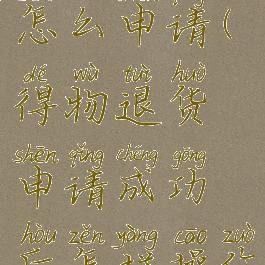 怎么申请(
dé wù tuì huò
得物退货
shēn qǐng chéng gōng
申请成功
hòu zěn yàng cāo zuò
后怎样操作